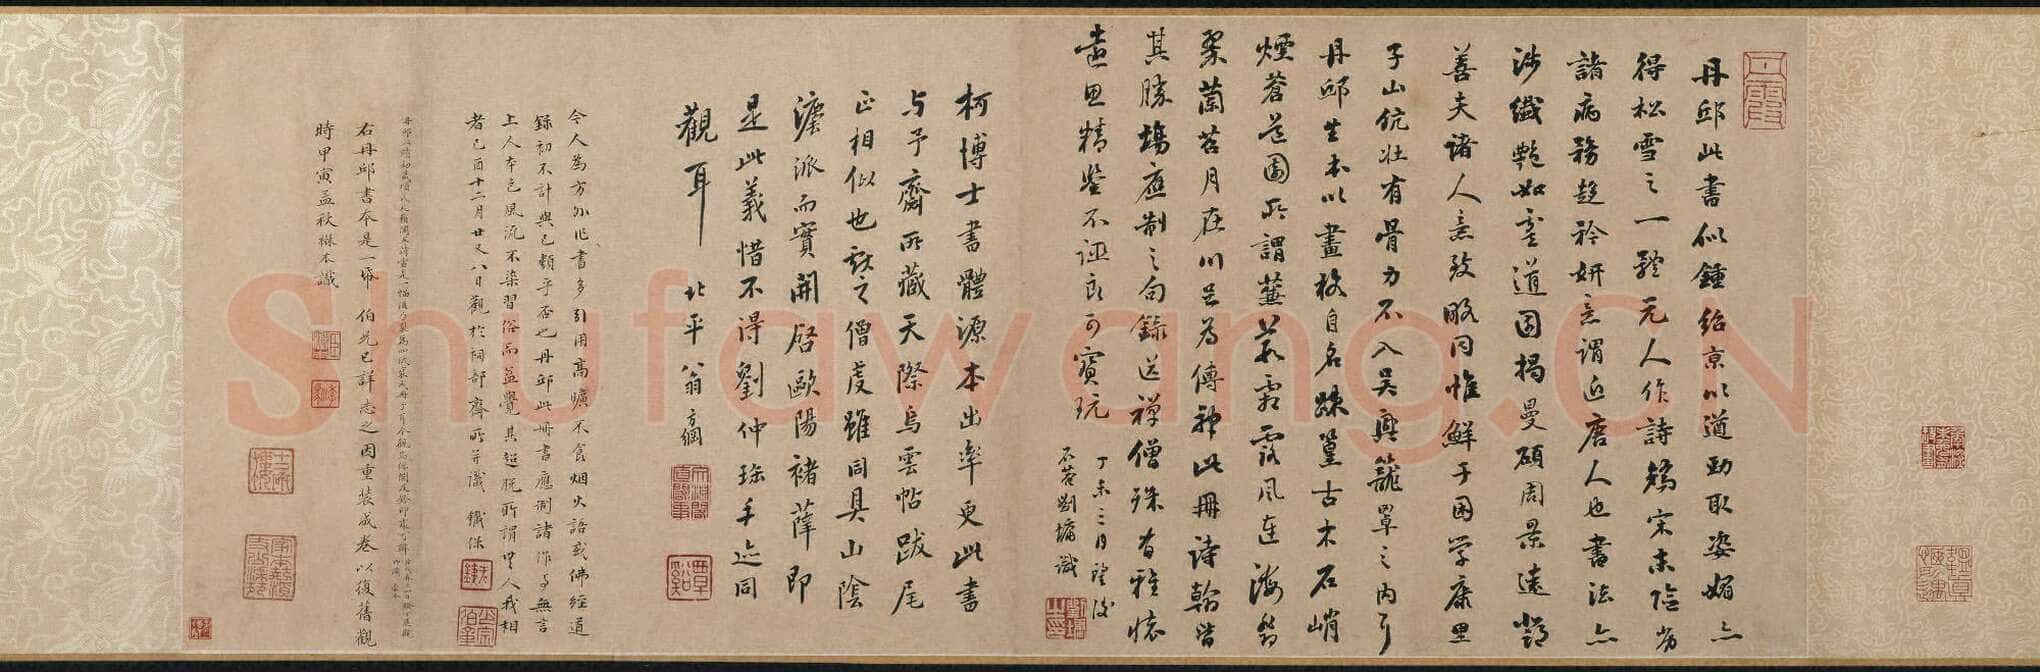 丹邱此書似鍾紹京以遒勁取姿媚亦
得松雪之一體元人作詩矯宋末險劣
諸病務趍矜妍意謂近唐人也書法亦
涉纖艷如虞道園揭曼碩周景遠鄧
善夫諸人意致略同惟鮮于困学康里
子山伉壯有骨力不入吳興籠罩之内耳
丹邱生本以畫格自名疎篁古木石峭
煙蒼是圖所謂蕪葭霜露風連海翁
翠蘭苕月在川足為傳神此冊詩翰皆
其勝場應制之句錄送禅僧殊有雅懷
盡思精鉴不誣良可寶玩
丁未三月望後
石菴劉墉識
柯博士書體源本出率更此書
与予齋所藏天際烏雲帖跋尾
正相似也欬之僧虔雖同具山陰
瀍派而實開啓歐陽褚薛即
是此義惜不得劉仲珎手迹同
觀耳 北平翁方綱
今人為方外作書多引用高曠不食烟火語或佛經道
錄初不計與已類乎否也丹邱此冊書應制諸作了無言
上人本色風流不染習俗而益覺其超脱所謂無人我相
者己酉十二月廿又八日觀於祠部齋所并識 鐵保
右丹邱書本是一帋 伯羌已詳志之因重装成卷以復舊觀
時甲寅孟秋樾本識
Shufawang.CN